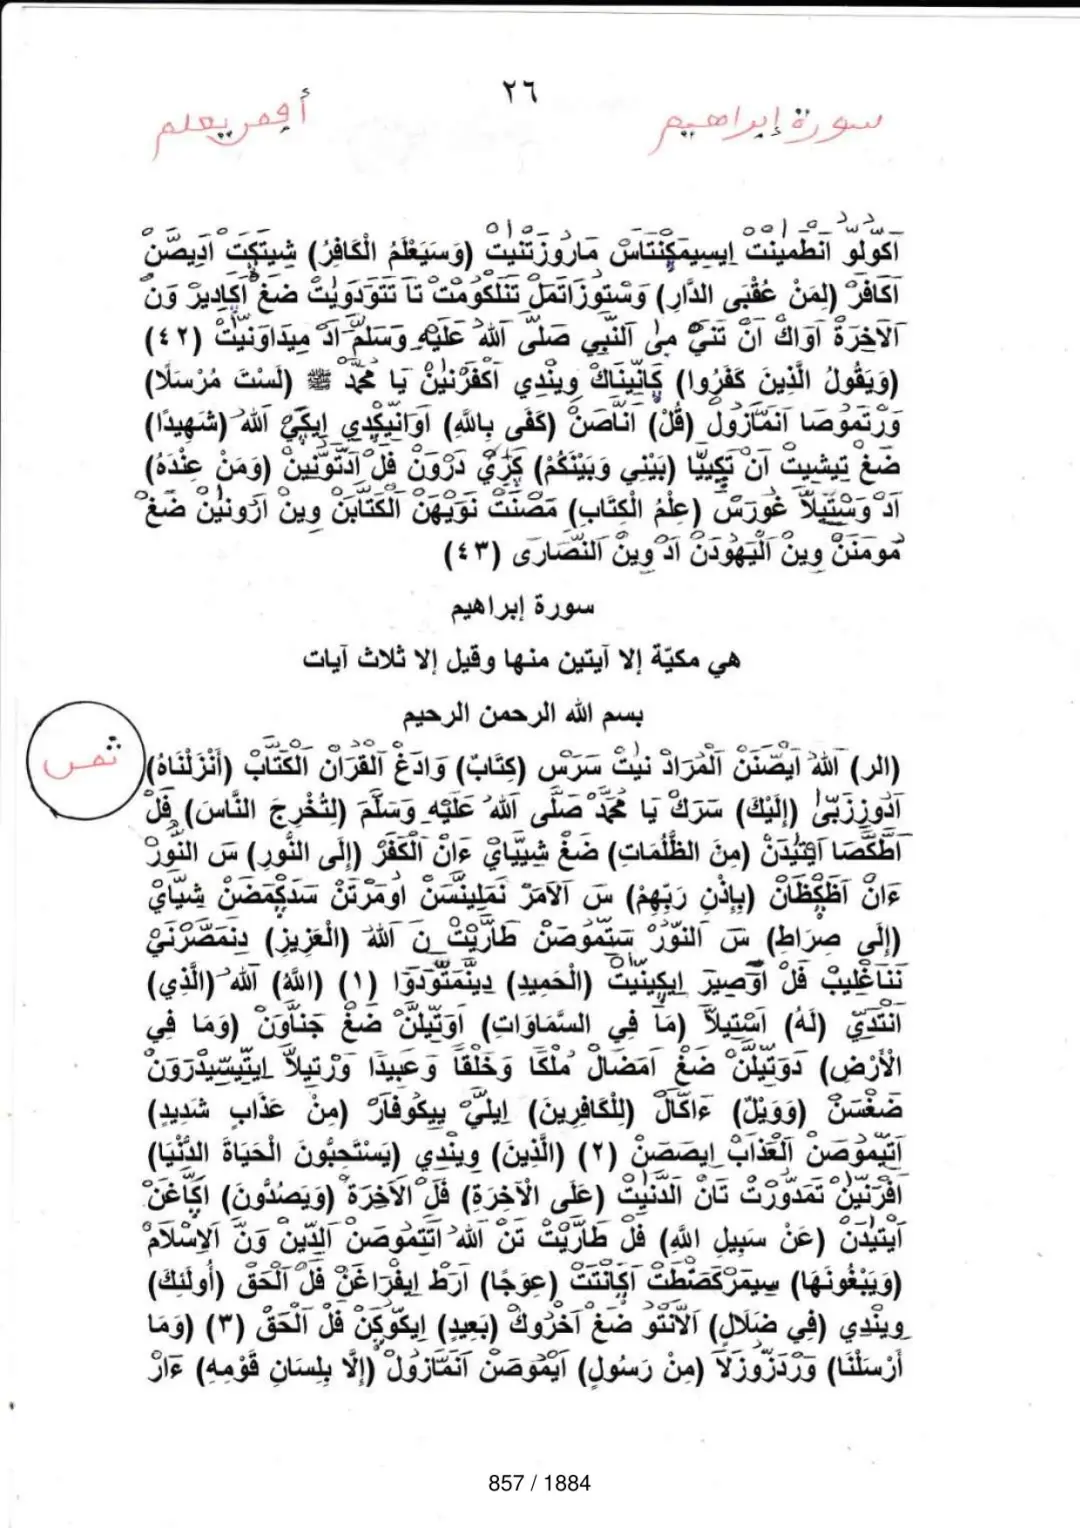 ٢٦
سورة إبراهيم
أفمن يعلم
اَكُولُو اَنْطَمِينْتْ اِيسِيمَكِنْتَاسْ مَارْوَزَتْنِيتْ (وَسَيَعْلَمُ الْكَافِرُ) شِيتَكِتْ اَدِيصَّنْ
اَكَافَرْ (لِمَنْ عُقْبَى الدَّارِ) وَسْتُوزَاتَمَلْ تَنَلْكَوْمَتْ تَا تَتَوَدَوِيتْ ضَغْ اَكَادِيرْ وَنْ
اَلَاخِرَةْ اَوَاكْ اَنْ تَنَيْ مِىٰ اَلنَّبِي صَلَّى اللهُ عَلَيْهِ وَسَلَّمْ اَدْ مِيدَاوَنِيتْ (٤٢)
(وَيَقُولُ الَّذِينَ كَفَرُوا) كَانِّينَاكْ وِينْدِي اَكْفَرْنِينْ يَا مُحَمَّدْ ﷺ (لَسْتَ مُرْسَلًا)
وَرْتَمُوصَا اَنَمَّازُولْ (قُلْ) اَنَّاصَنْ (كَفَى بِاللَّهِ) اَوَانِّيكْدِي اِيكَيْ اَللهُ (شَهِيدًا)
ضَغْ تِيشِيتْ اَنْ تَكِييَّا (بَيْنِي وَبَيْنَكُمْ) كَرَيْ دَرَوَنْ فَلْ اَدَتُّوَنِينْ (وَمَنْ عِنْدَهُ)
اَدْ وَسْتِيلَّا غُورَسْ (عِلْمُ الْكِتَابِ) مَصْنَتْ نَوِيهَنْ اَلْكَتَّابَنْ وِينْ اَزُونِينْ ضَغْ
مُومَنَنْ وِينْ اَلْيَهُودَنْ اَدْ وِينْ اَلنَّصَارَى (٤٣)
سورة إبراهيم
هي مكيّة إلا آيتين منها وقيل إلا ثلاث آيات
بسم الله الرحمن الرحيم
ثمن
(الر) اَللهُ اَيَصَّنَنْ اَلْمُرَادْ نِيتْ سَرَسْ (كِتَابٌ) وَادَغْ اَلْقُرَانْ اَلْكَتَّابْ (أَنْزَلْنَاهُ)
اَدُوزِزَبَّىٰ (إِلَيْكَ) سَرَكْ يَا مُحَمَّدْ صَلَّى اللهُ عَلَيْهِ وَسَلَّمَ (لِتُخْرِجَ النَّاسَ) فَلْ
اَطَّكَّصَا اَيْتِيدَنْ (مِنَ الظُّلُمَاتِ) ضَغْ شِييَّايْ ءَانْ اَلْكَفَرْ (إِلَى النُّورِ) سَ اَلنُّورْ
ءَانْ اَظَّكْظَانْ (بِإِذْنِ رَبِّهِمْ) سَ اَلَامَرْ نَمَلِينَسَنْ اَوْمَرْتَنْ سَدَكْمَضَنْ شِيَّايْ
(إِلَى صِرَاطِ) سَ اَلنُّورْ سَتَمُوصَنْ طَارَيْتْ نَ اَللهُ (الْعَزِيزِ) دِنَمَصْرَنَيْ
نَنَاغْلِيبْ فَلْ اَوْصِيرْ اِيكِينِيتْ (الْحَمِيدِ) دِينَمَتُّودَوَا (١) (اللَّهُ) اَللهُ (الَّذِي)
اَنْتَدَيْ (لَهُ) اَسْتِيلَّا (مَا فِي السَّمَاوَاتِ) اَوَتِيلَّنْ ضَغْ جَنَّاوَنْ (وَمَا فِي
الْأَرْضِ) دَوَتِيلَّنْ ضَغْ اَمَضَالْ مُلْكًا وَخَلْقًا وَعَبِيدًا وَرْتِيلَّا اِيتِيسِّيدْرَوَنْ
ضَغْسَنْ (وَوَيْلٌ) ءَاكَالْ (لِلْكَافِرِينَ) اِيلَيْ يِيكُوفَارْ (مِنْ عَذَابٍ شَدِيدٍ)
اَتِيمُوصَنْ اَلْعَذَابْ اِيصَصَنْ (٢) (الَّذِينَ) وِينْدِي (يَسْتَحِبُّونَ الْحَيَاةَ الدُّنْيَا)
اَفْرَنِينْ تَمَدُّورْتْ تَانْ اَلدَّنِيتْ (عَلَى الْآخِرَةِ) فَلْ اَلَاخِرَةْ (وَيَصُدُّونَ) اَكَّاغَنْ
اَيْتِيدَنْ (عَنْ سَبِيلِ اللَّهِ) فَلْ طَارَيْتْ تَنْ اَللهُ اَتَتَمُوصَنْ اَلدِّينْ وَنْ اَلِاسْلَامْ
(وَيَبْغُونَهَا) سِيمَرْكَضْطَتْ اَكَانْتَتْ (عِوَجًا) اَرَطْ اِيفْرَاغَنْ فَلْ اَلْحَقْ (أُولَئِكَ)
وِينْدِي (فِي ضَلَالٍ) اَلَانْتُو ضَغْ اَخَرُوكْ (بَعِيدٍ) اِيكُّوكَنْ فَلْ اَلْحَقْ (٣) (وَمَا
أَرْسَلْنَا) وَرْدَزُّوزَلَا (مِنْ رَسُولٍ) اَيَمُوصَنْ اَنَمَّازُولْ (إِلَّا بِلِسَانِ قَوْمِهِ) ءَارْ
857 / 1884